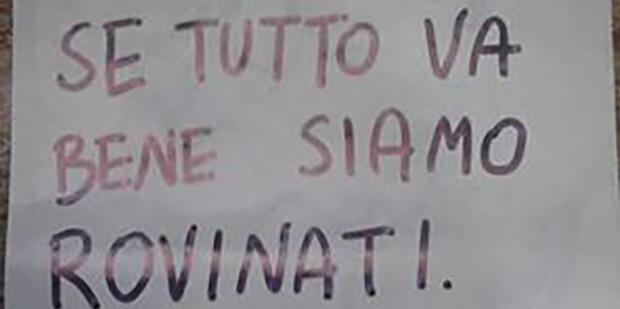 SE TUTTO VA
BENE SIAMO
ROVINATI.